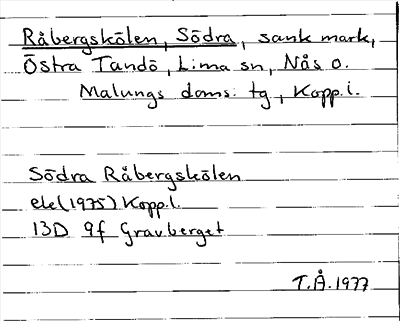 Råbergskölen, Södra, sank mark,
Östra Tandö, Lima sn, Nås o.
Malungs doms. tg, Kopp.l.
Södra Råbergskölen
ek(1975) Kopp.l.
13D 9f Gravberget
T.Å.1977